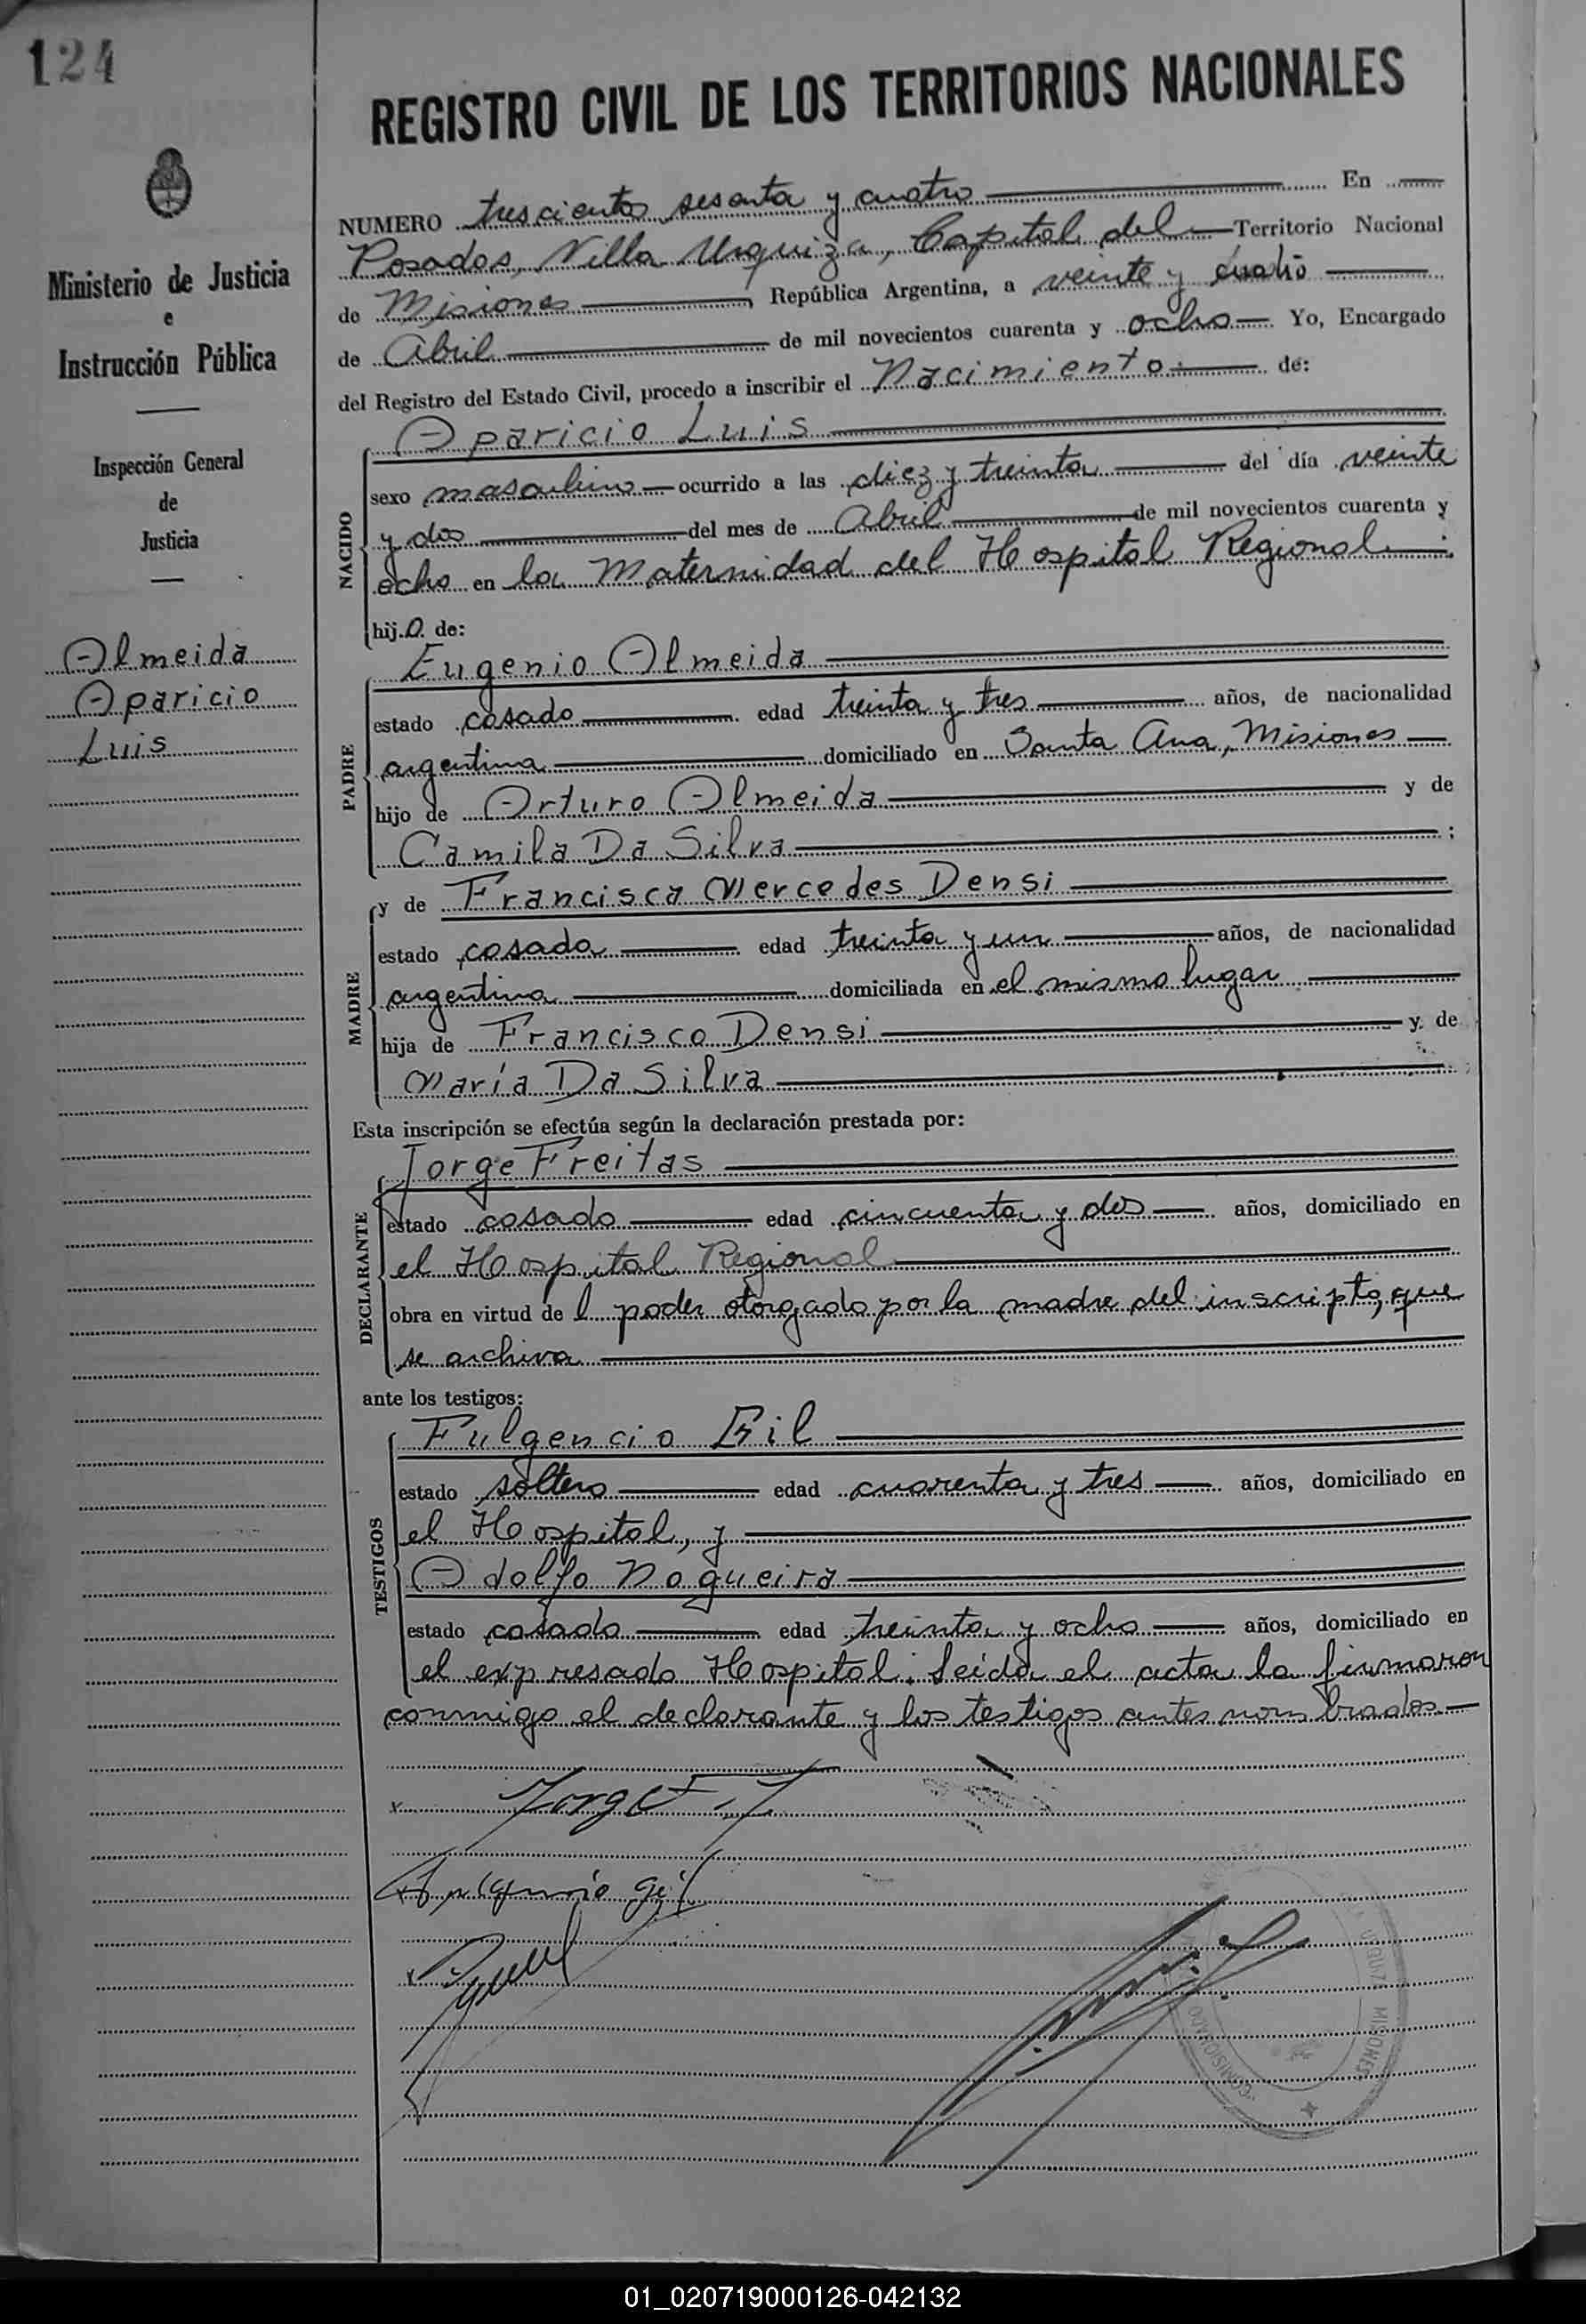 124
REGISTRO CIVIL DE LOS TERRITORIOS NACIONALES
Ministerio de Justicia
e
Instrucción Pública
Inspección General
de
Justicia
Almeida
Aparicio
Luis
NUMERO trescientos sesenta y cuatro En
Posadas, Villa Urquiza, Capital del Territorio Nacional
de Misiones, República Argentina, a veinte y cuatro
de Abril de mil novecientos cuarenta y ocho Yo, Encargado
del Registro del Estado Civil, procedo a inscribir el Nacimiento de:
NACIDO
Aparicio Luis
sexo masculino ocurrido a las diez y treinta del día veinte
y dos del mes de Abril de mil novecientos cuarenta y
ocho en la Maternidad del Hospital Regional.
hijo de:
PADRE
Eugenio Almeida
estado casado edad treinta y tres años, de nacionalidad
argentina domiciliado en Santa Ana, Misiones
hijo de Arturo Almeida y de
Camila Da Silva ;
MADRE
y de Francisca Mercedes Densi
estado casada edad treinta y un años, de nacionalidad
argentina domiciliada en el mismo lugar
hija de Francisco Densi y de
María Da Silva
Esta inscripción se efectúa según la declaración prestada por:
DECLARANTE
Jorge Freitas
estado casado edad cincuenta y dos años, domiciliado en
el Hospital Regional
obra en virtud del poder otorgado por la madre del inscripto, que
se archiva
ante los testigos:
TESTIGOS
Fulgencio Gil
estado soltero edad cuarenta y tres años, domiciliado en
el Hospital, y
Adolfo Nogueira
estado casado edad treinta y ocho años, domiciliado en
el expresado Hospital. Leída el acta la firmaron
conmigo el declarante y los testigos antes nombrados
Jorge F
Gil
URQUIZA MISIONES
COMISIONADO
01_020719000126-042132